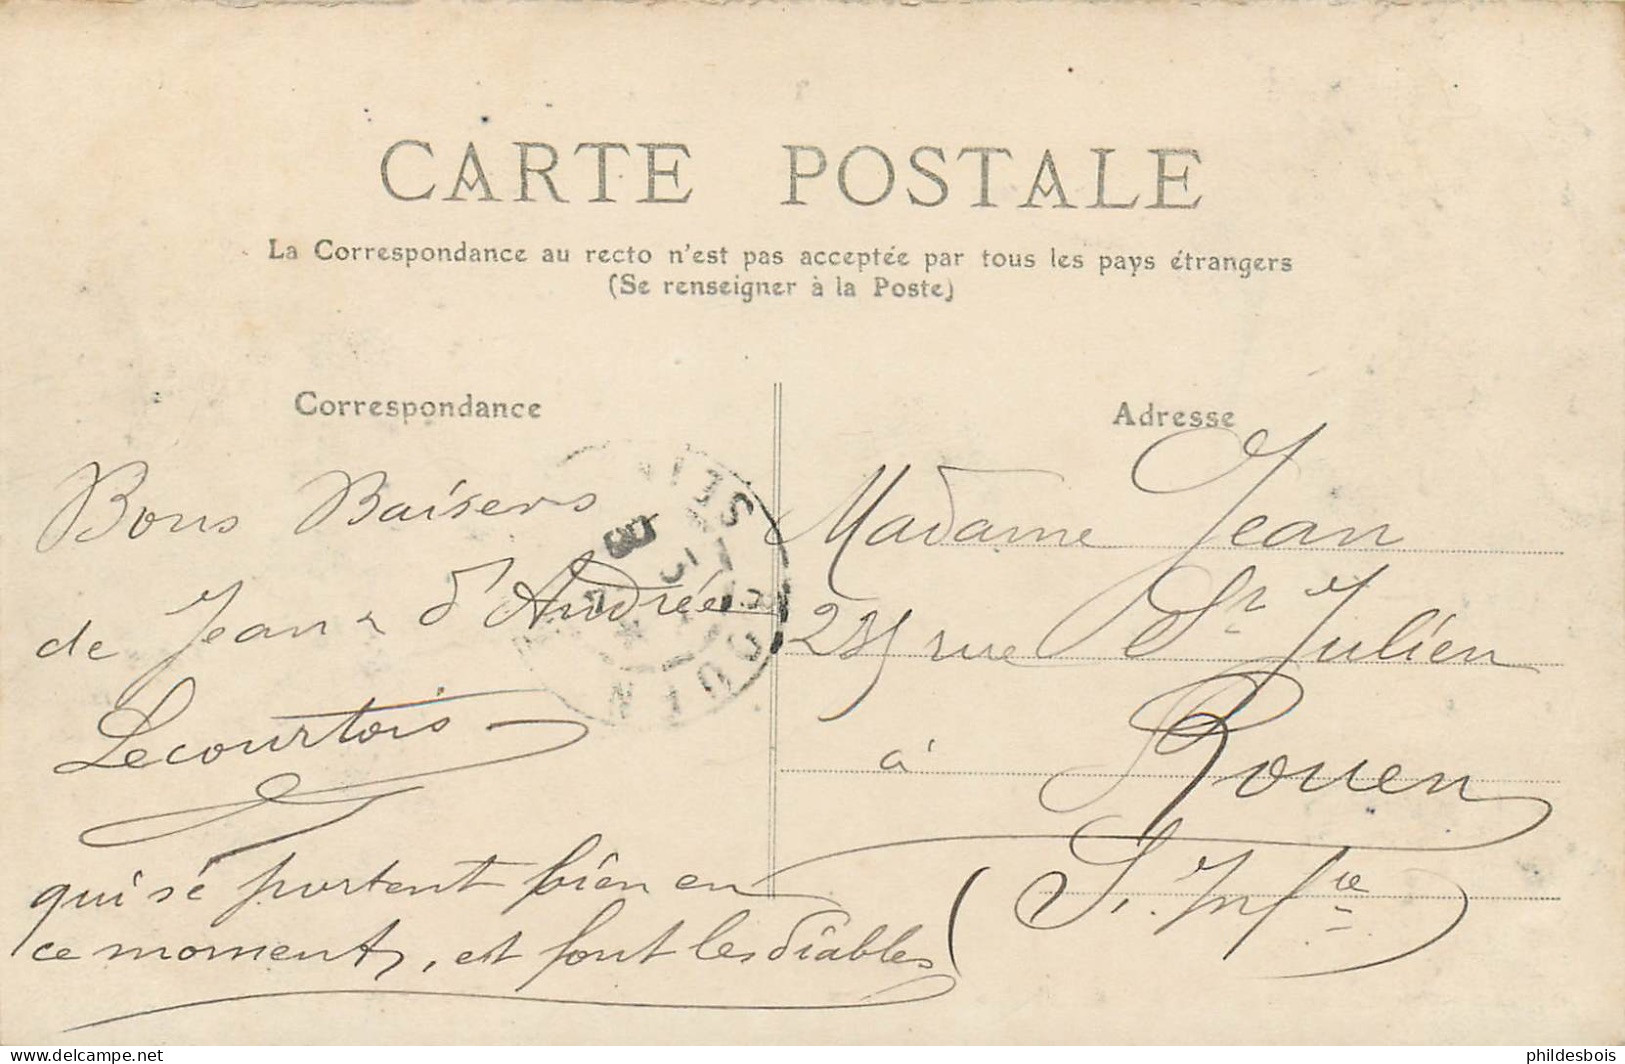 CARTE POSTALE
La Correspondance au recto n'est pas acceptée par tous les pays étrangers
(Se renseigner à la Poste)
Correspondance
Bons Baisers
de Jean & d'Andrée
Lecourtois
qui se portent bien en
ce moment, et font les diables
Adresse
Madame Jean
rue St Julien
à Rouen
(S. Infre)
delcampe.net
phildesbois